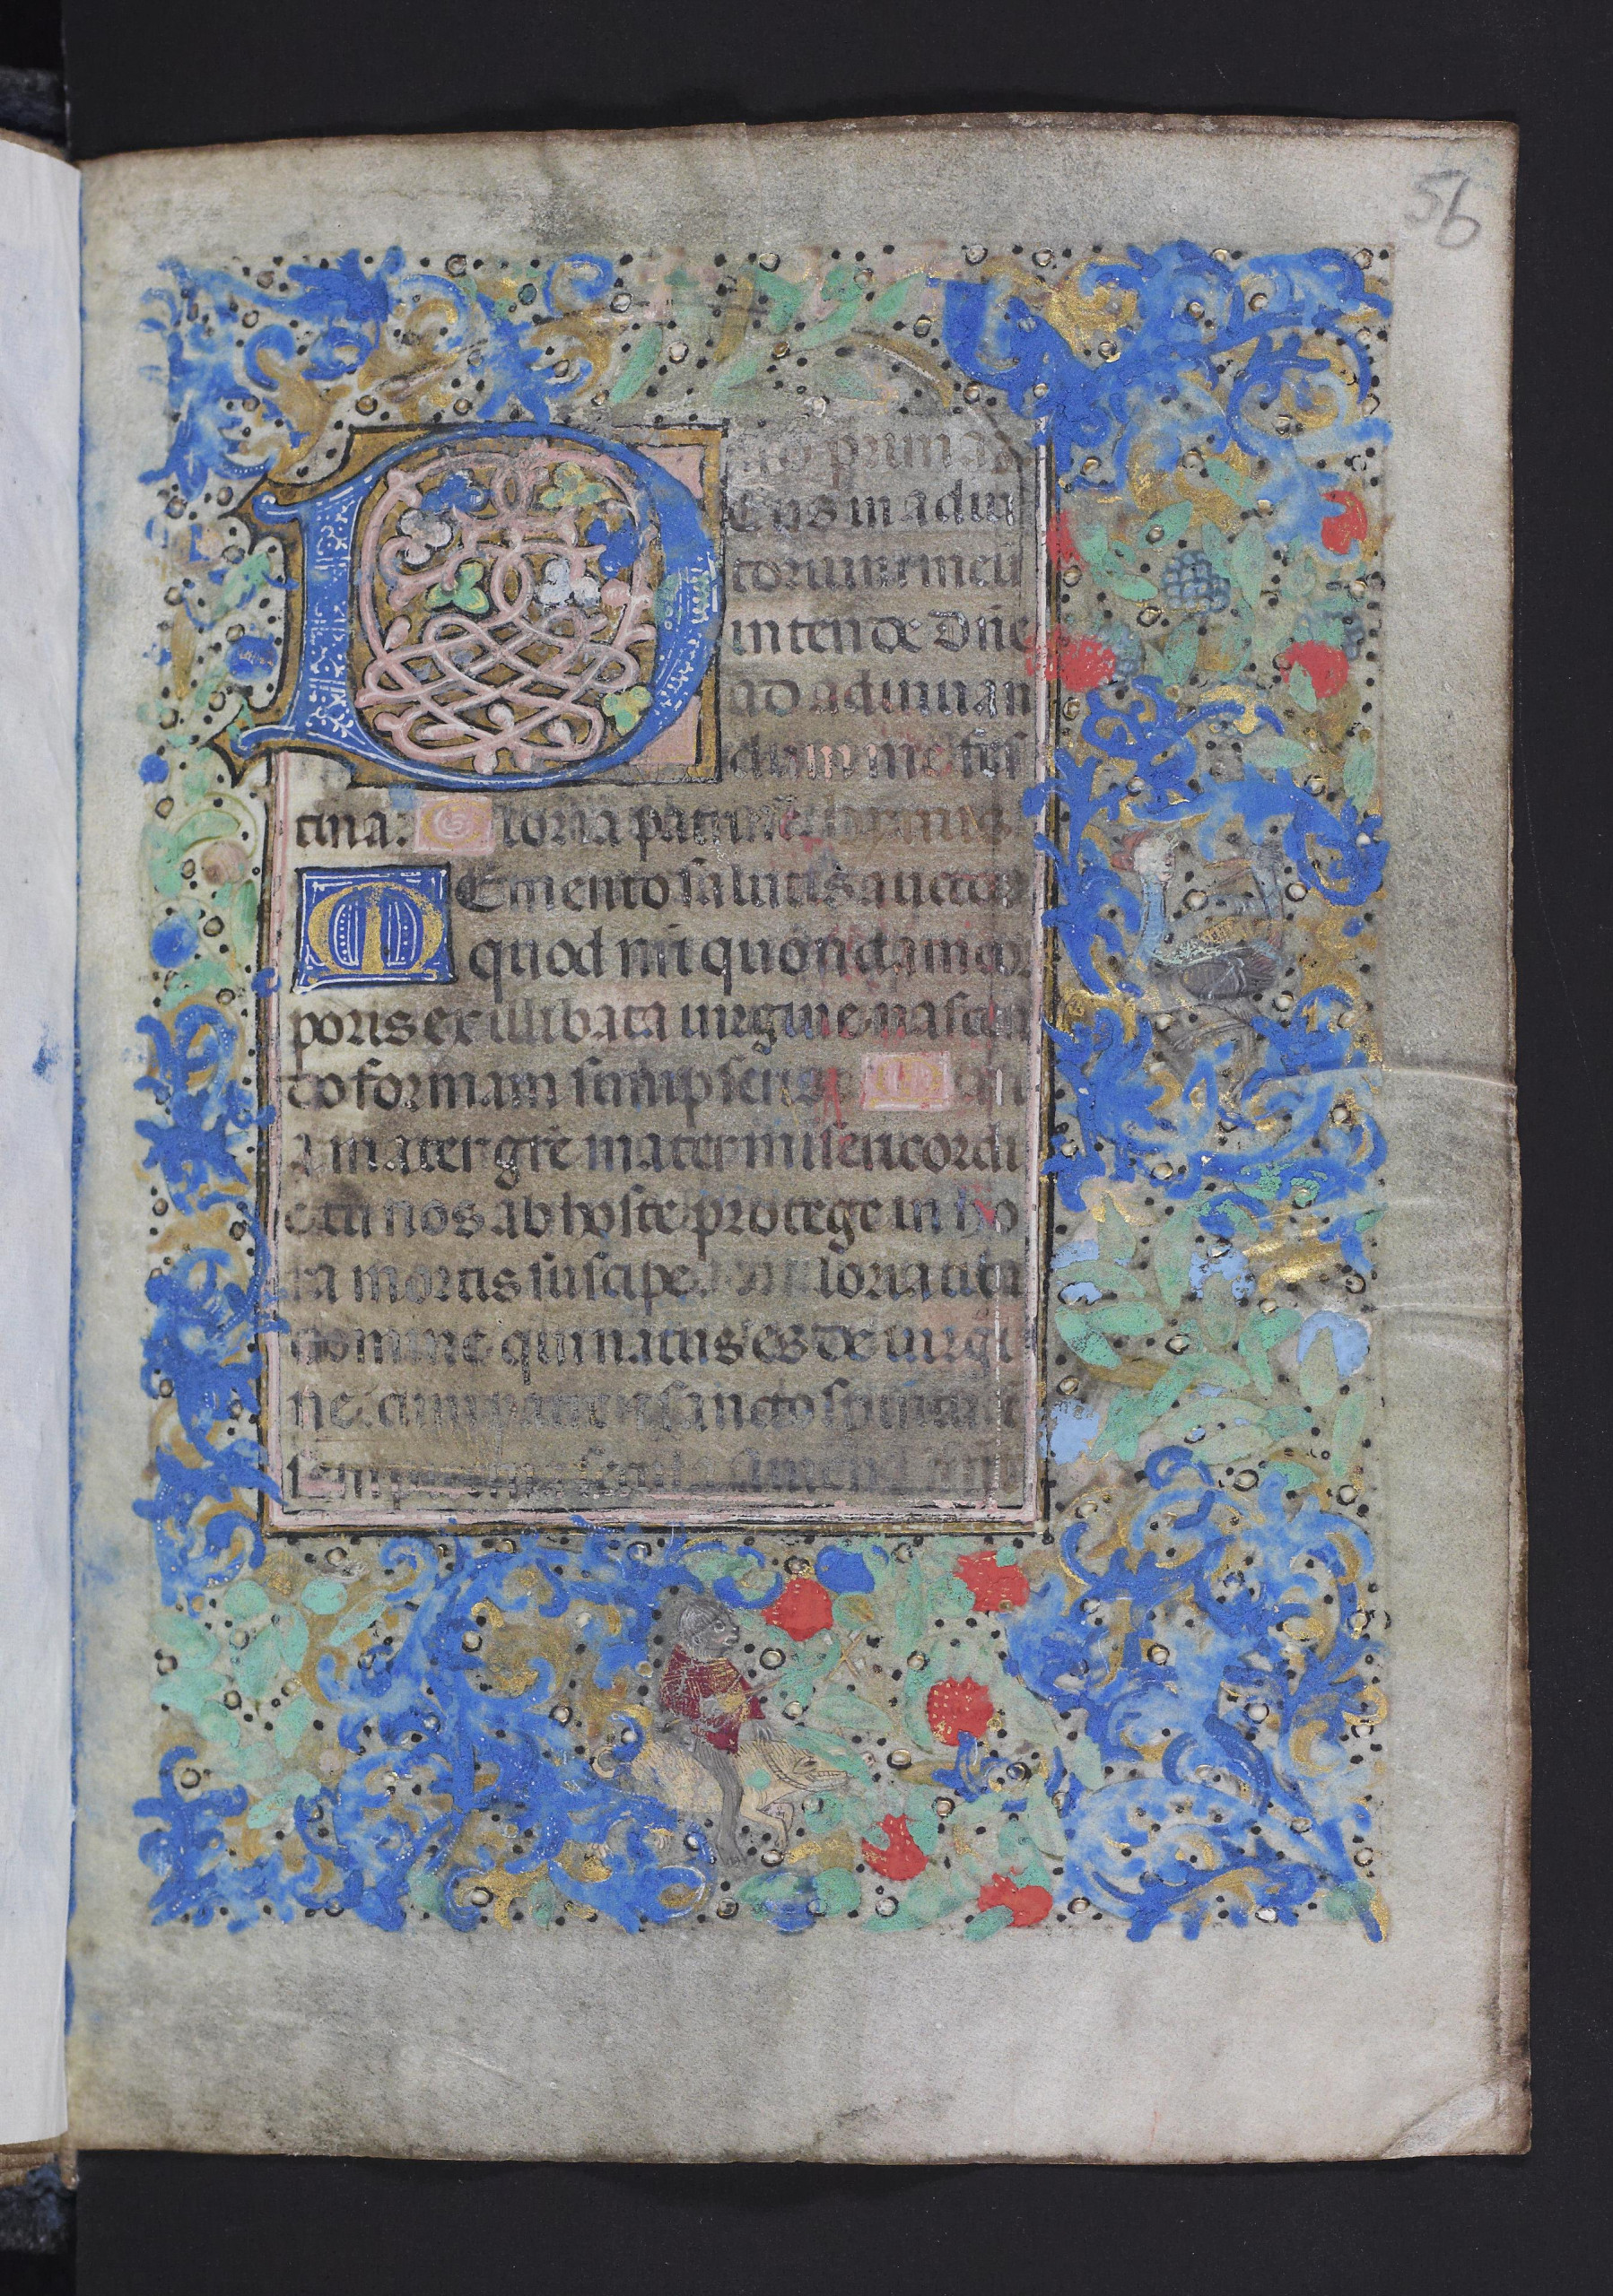 56
Ad primam
D Eus in adiu
torium meū
intende Dn̄e
ad adiuuan
dum me fes
tina. Gloria patri
MEmento salutis auctor
quod nr̄i quondam cor
poris ex illibata uirgine nascen
do formam sumpseris Mari
a mater gr̄e mater misericordi
e tu nos ab hoste protege in ho
ra mortis suscipe. Gloria tibi
domine qui natus es de uirgi
ne cum patre et sancto spiritu in
sempiterna secula amen